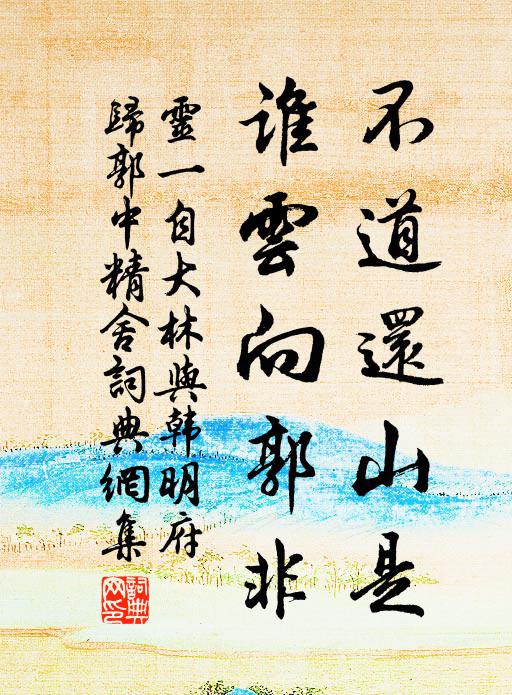 不道還山是
誰雲向郭非
靈一自大林與韩明府
歸郭中精舍詞典網集
詞典
网印